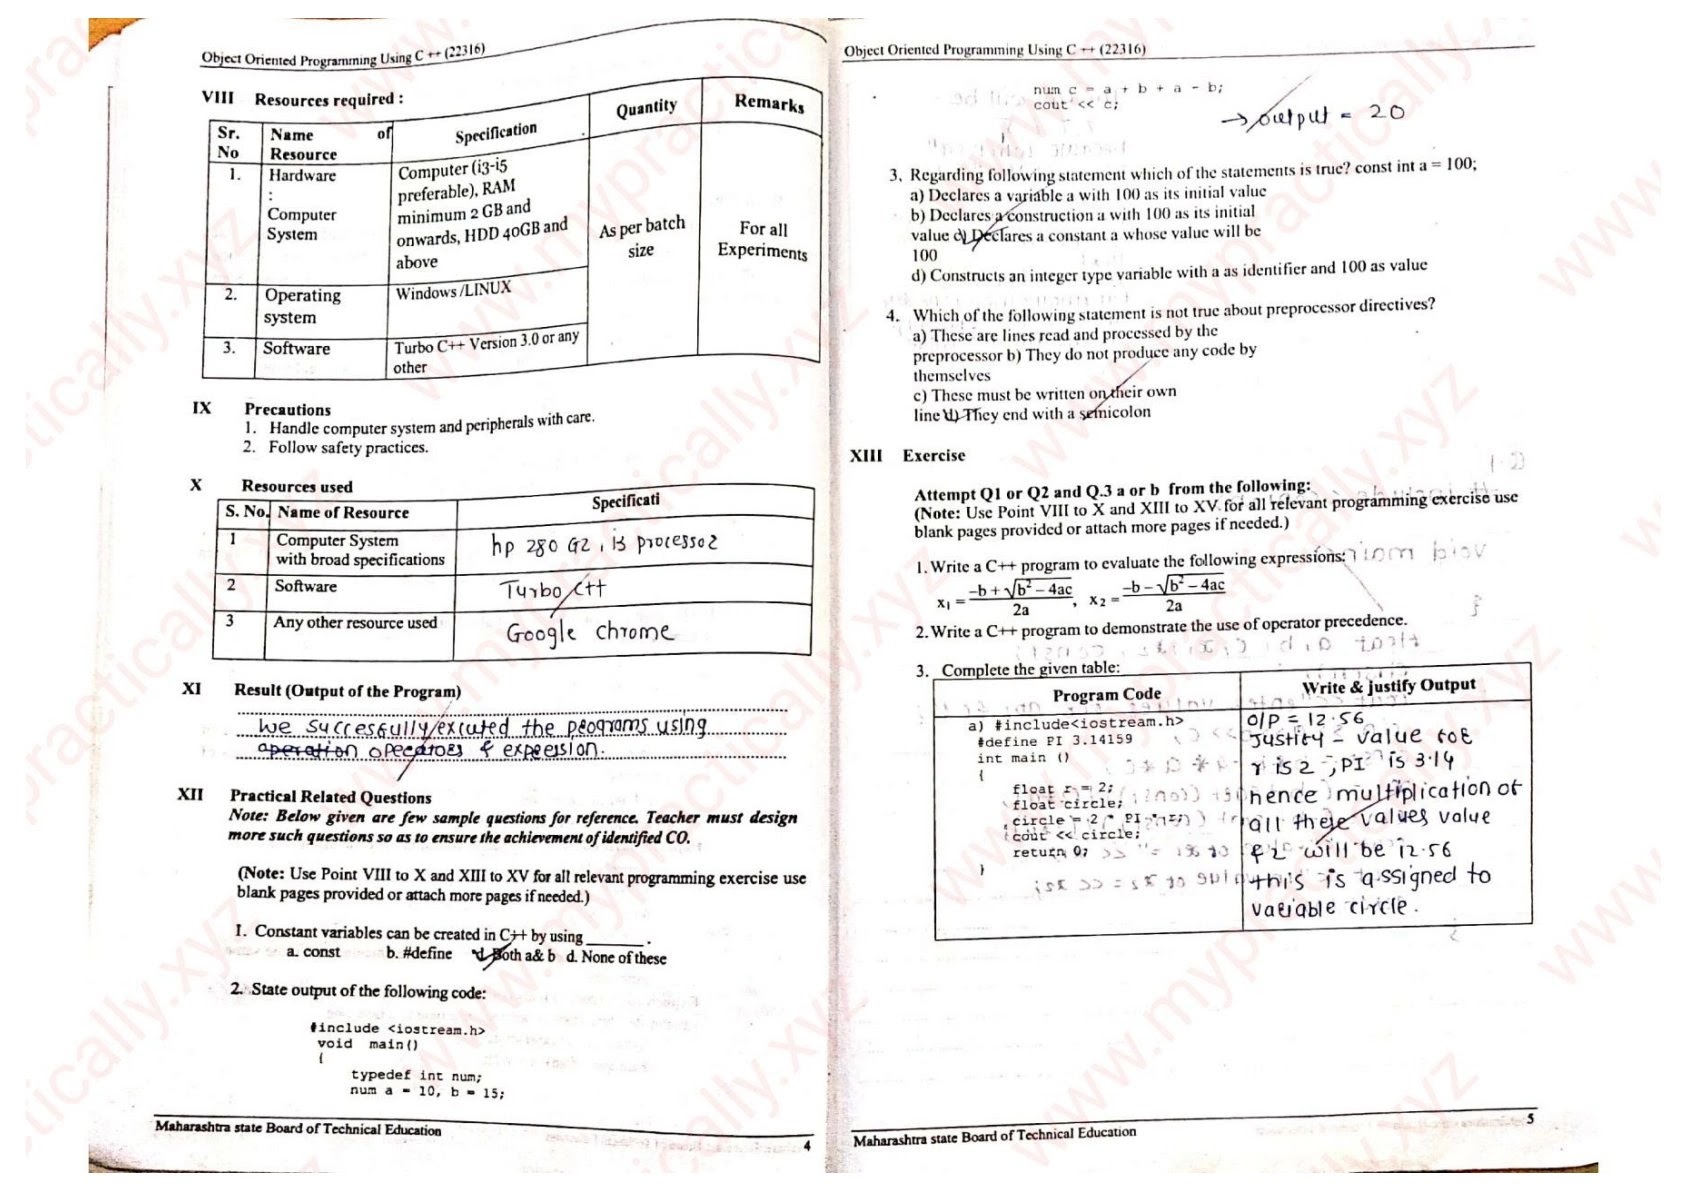 Object Oriented Programming Using C ++ (22316)
VIII Resources required :
Sr. No Name of Resource Specification Quantity Remarks
1. Hardware : Computer System Computer (i3-i5 preferable), RAM minimum 2 GB and onwards, HDD 40GB and above As per batch size For all Experiments
2. Operating system Windows /LINUX
3. Software Turbo C++ Version 3.0 or any other
IX Precautions
1. Handle computer system and peripherals with care.
2. Follow safety practices.
X Resources used
S. No. Name of Resource Specificati
1 Computer System with broad specifications hp 280 G2, i3 processor
2 Software Turbo C++
3 Any other resource used Google chrome
XI Result (Output of the Program)
We successfully excuted the programs using
operation operators & expression.
XII Practical Related Questions
Note: Below given are few sample questions for reference. Teacher must design
more such questions so as to ensure the achievement of identified CO.
(Note: Use Point VIII to X and XIII to XV for all relevant programming exercise use
blank pages provided or attach more pages if needed.)
1. Constant variables can be created in C++ by using ______ .
a. const b. #define Both a& b d. None of these
2. State output of the following code:
#include <iostream.h>
void main()
{
typedef int num;
num a = 10, b = 15;
Maharashtra state Board of Technical Education
4
Object Oriented Programming Using C ++ (22316)
num c = a + b + a - b;
cout << c;
}
→ output = 20
3. Regarding following statement which of the statements is true? const int a = 100;
a) Declares a variable a with 100 as its initial value
b) Declares a construction a with 100 as its initial
value c) Declares a constant a whose value will be
100
d) Constructs an integer type variable with a as identifier and 100 as value
4. Which of the following statement is not true about preprocessor directives?
a) These are lines read and processed by the
preprocessor b) They do not produce any code by
themselves
c) These must be written on their own
line d) They end with a semicolon
XIII Exercise
Attempt Q1 or Q2 and Q.3 a or b from the following:
(Note: Use Point VIII to X and XIII to XV for all relevant programming exercise use
blank pages provided or attach more pages if needed.)
1. Write a C++ program to evaluate the following expressions:
x₁ = (-b + √(b² - 4ac)) / 2a , x₂ = (-b - √(b² - 4ac)) / 2a
2. Write a C++ program to demonstrate the use of operator precedence.
3. Complete the given table:
Program Code Write & justify Output
a) #include<iostream.h>
#define PI 3.14159
int main ()
{
float r = 2;
float circle;
circle = 2 * PI * r;
cout << circle;
return 0;
}
O/P = 12.56
Justify - value for
r is 2 , PI is 3.14
hence multiplication of
all these values value
& 2 will be 12.56
this is assigned to
variable circle.
Maharashtra state Board of Technical Education
5
www.mypractically.xyz